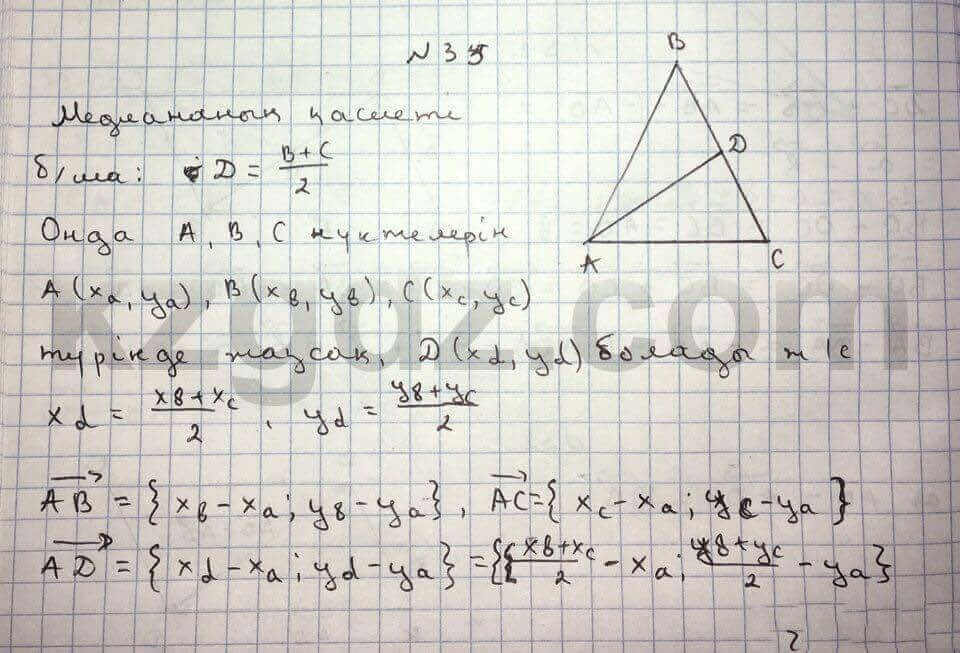 N 335
Медиананың қасиеті
б/ша: D = B+C / 2
Онда A, B, C нүктелерін
A(xa, ya), B(xв, yв), C(xc, yc)
түрінде жазсақ, D(xd, yd) болады ж/е
xd = xв+xc / 2, yd = yв+yc / 2
AB = {xв-xa; yв-ya}, AC={xc-xa; yc-ya}
AD = {xd-xa; yd-ya} = {xв+xc / 2 - xa; yв+yc / 2 - ya}
B
D
A
C
kzgdz.com